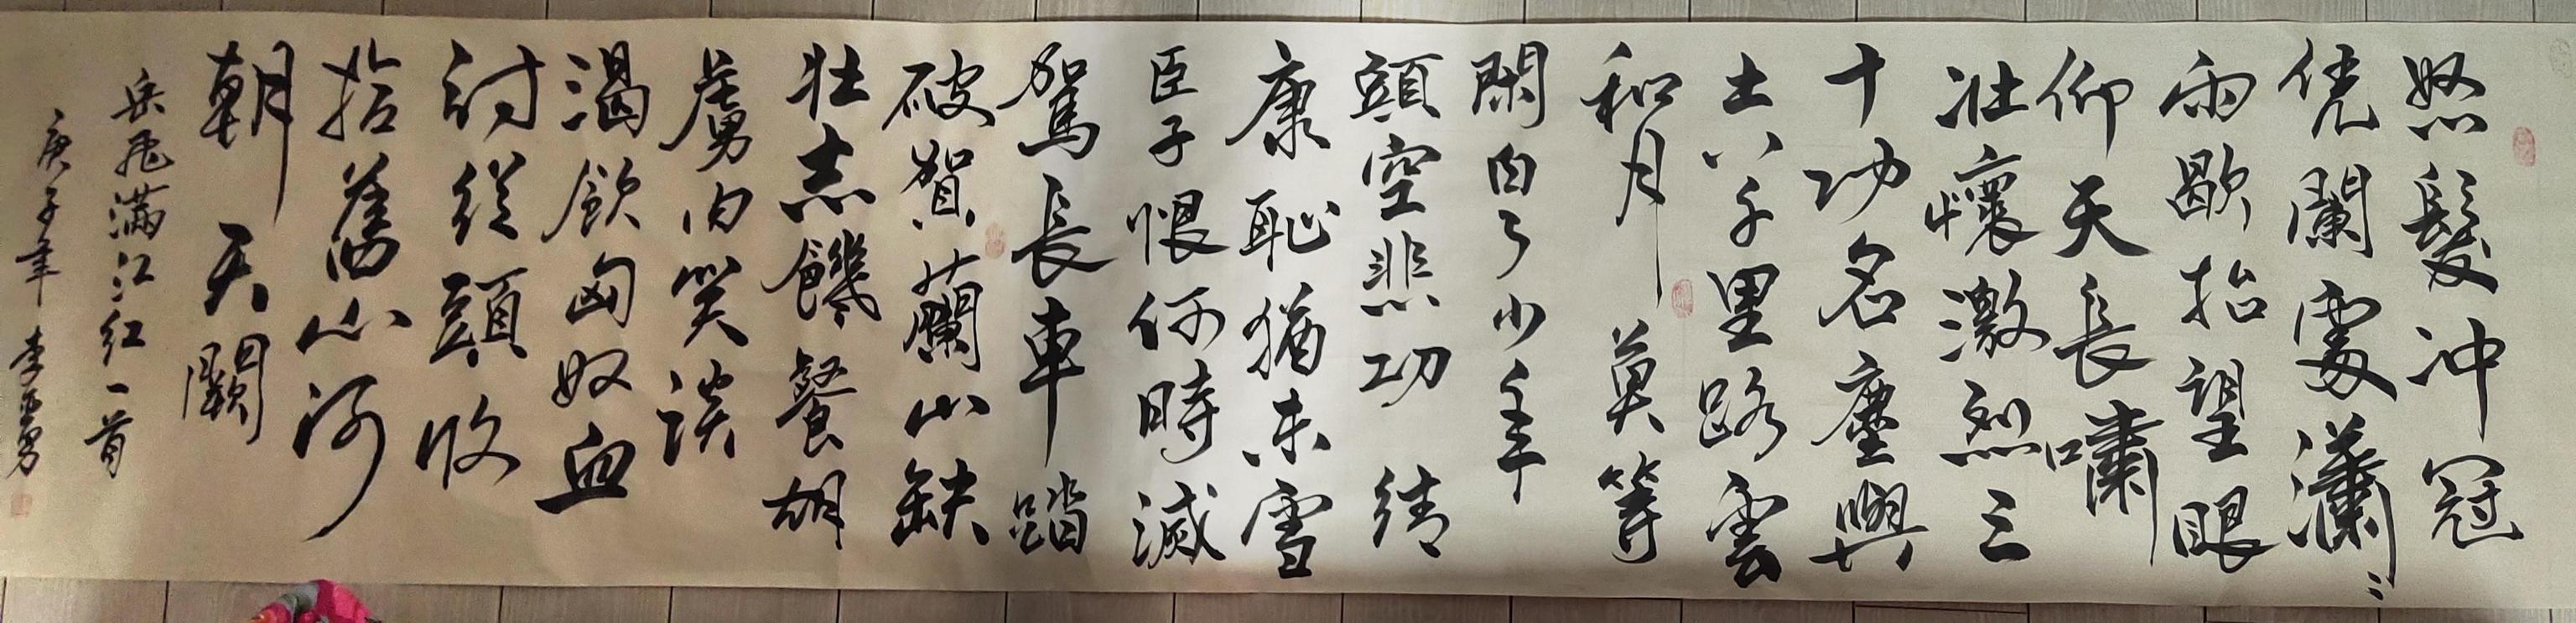 怒髮冲冠
凭闌處瀟〻
雨歇抬望眼
仰天長嘯
壯懷激烈三
十功名塵與
土八千里路雲
和月莫等
閑白了少年
頭空悲切靖
康恥猶未雪
臣子恨何時滅
駕長車踏
破賀蘭山缺
壯志饑餐胡
虜肉笑談
渴飲匈奴血
待從頭收
拾舊山河
朝天闕
岳飛滿江红一首
庚子年 李勇